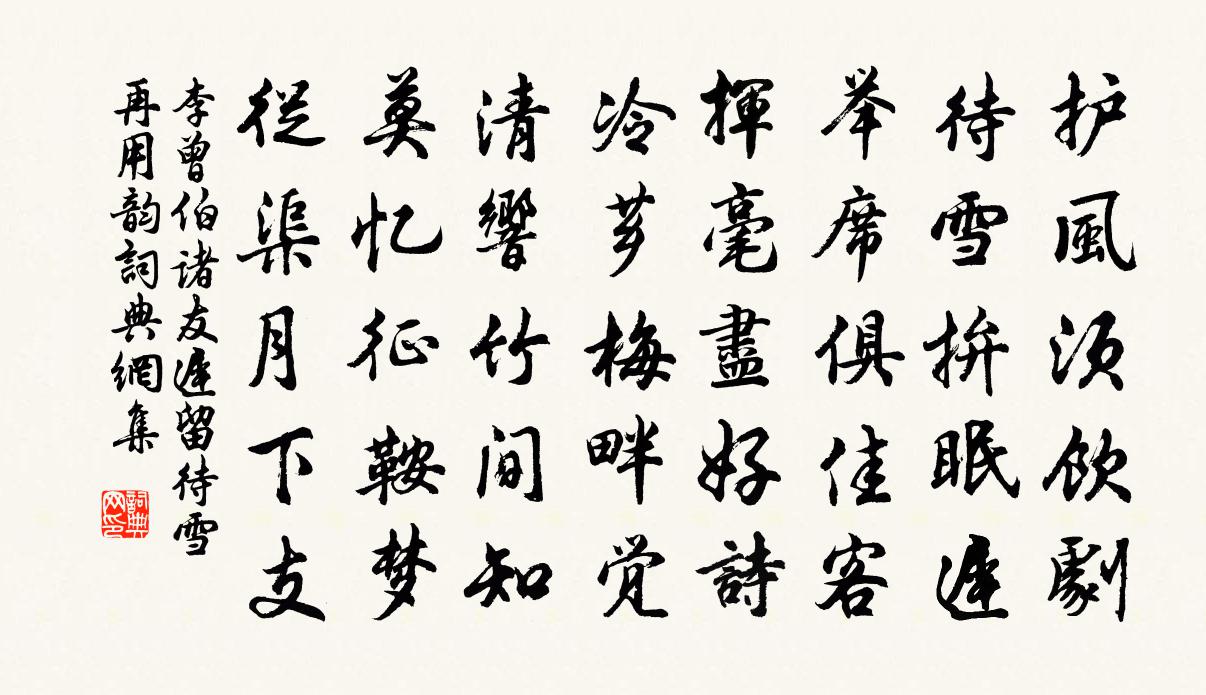 护風须飲劇
待雪拚眠遲
举席俱佳客
揮毫盡好詩
冷芗梅畔觉
清響竹间知
莫忆征鞍梦
從渠月下支
李曾伯诸友遲留待雪
再用韵詞典網集
詞典网印